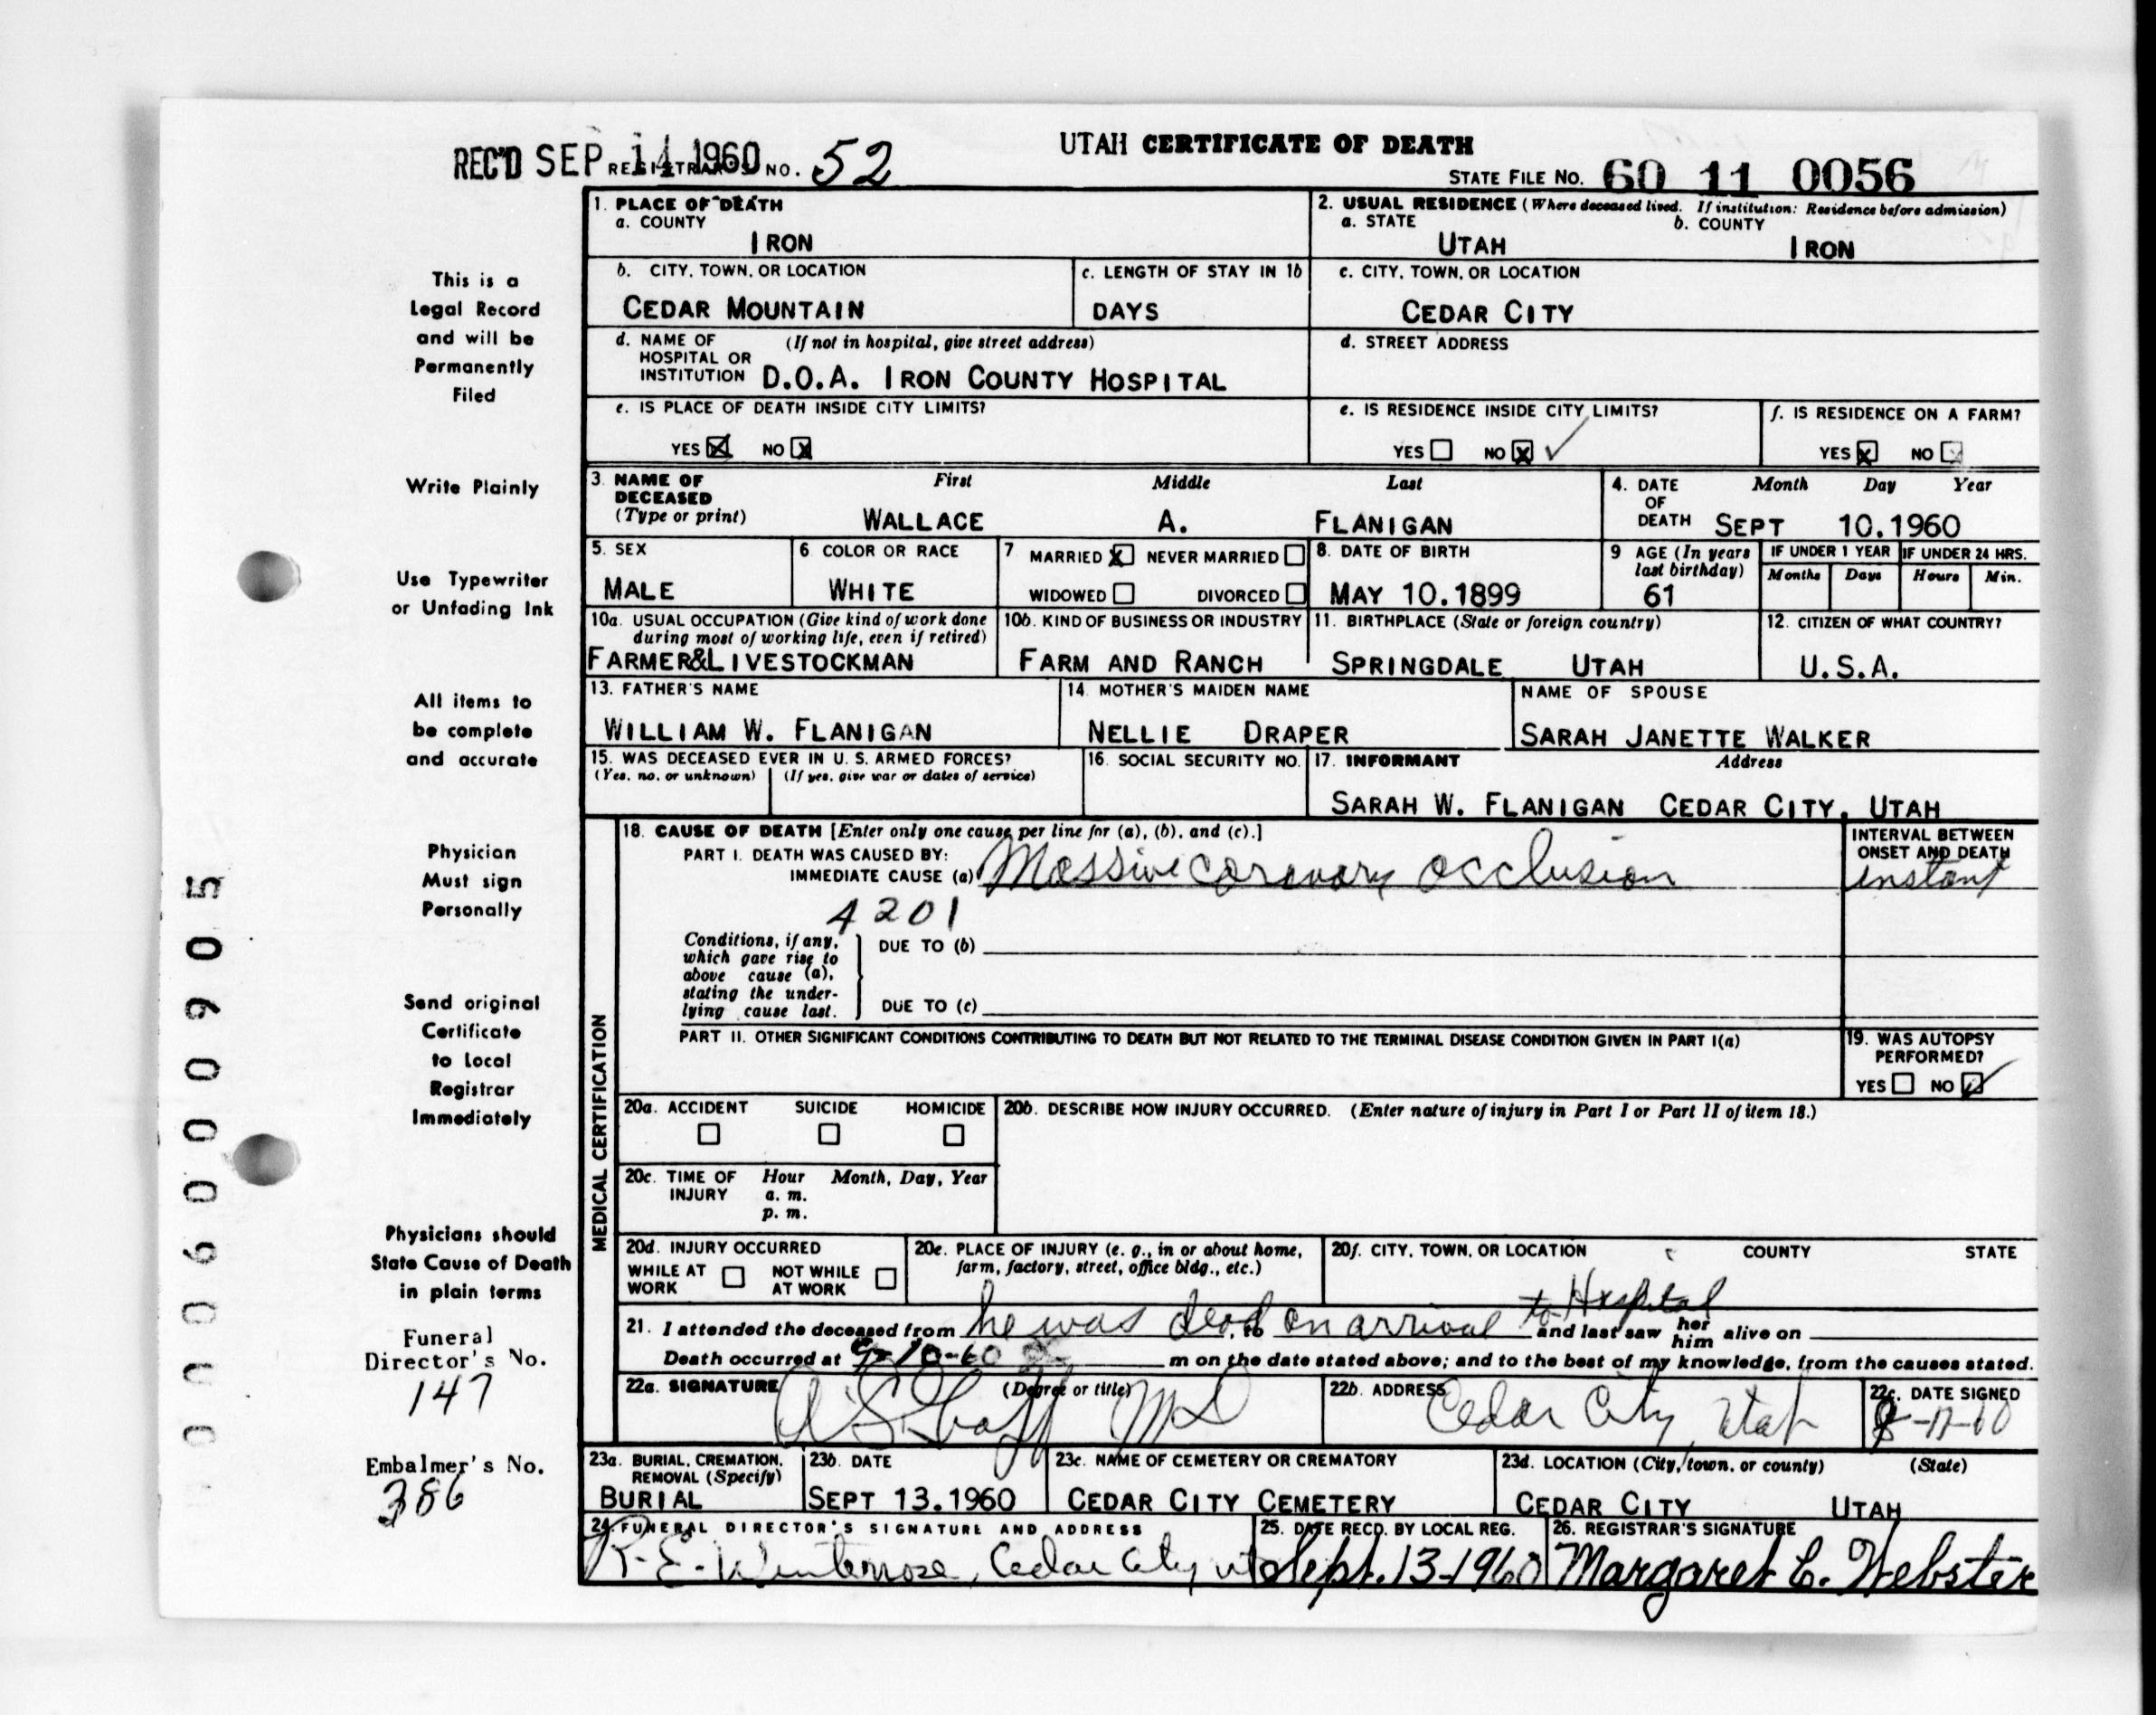 UTAH CERTIFICATE OF DEATH
REC'D SEP 14 1960 REGISTRAR'S NO. 52
STATE FILE NO. 60 11 0056
1. PLACE OF DEATH
a. COUNTY
IRON
2. USUAL RESIDENCE (Where deceased lived. If institution: Residence before admission)
a. STATE b. COUNTY
UTAH IRON
b. CITY, TOWN, OR LOCATION
CEDAR MOUNTAIN
c. LENGTH OF STAY IN 1b
DAYS
c. CITY, TOWN, OR LOCATION
CEDAR CITY
d. NAME OF (If not in hospital, give street address)
HOSPITAL OR
INSTITUTION D.O.A. IRON COUNTY HOSPITAL
d. STREET ADDRESS
e. IS PLACE OF DEATH INSIDE CITY LIMITS?
YES NO X
e. IS RESIDENCE INSIDE CITY LIMITS?
YES NO X
f. IS RESIDENCE ON A FARM?
YES X NO
3. NAME OF DECEASED (Type or print)
First Middle Last
WALLACE A. FLANIGAN
4. DATE OF DEATH
Month Day Year
SEPT 10.1960
5. SEX
MALE
6 COLOR OR RACE
WHITE
7 MARRIED X NEVER MARRIED
WIDOWED DIVORCED
8. DATE OF BIRTH
MAY 10.1899
9 AGE (In years last birthday)
61
IF UNDER 1 YEAR IF UNDER 24 HRS.
Months Days Hours Min.
10a. USUAL OCCUPATION (Give kind of work done
during most of working life, even if retired)
FARMER&LIVESTOCKMAN
10b. KIND OF BUSINESS OR INDUSTRY
FARM AND RANCH
11. BIRTHPLACE (State or foreign country)
SPRINGDALE UTAH
12. CITIZEN OF WHAT COUNTRY?
U.S.A.
13. FATHER'S NAME
WILLIAM W. FLANIGAN
14. MOTHER'S MAIDEN NAME
NELLIE DRAPER
NAME OF SPOUSE
SARAH JANETTE WALKER
15. WAS DECEASED EVER IN U. S. ARMED FORCES?
(Yes, no, or unknown) (If yes, give war or dates of service)
16. SOCIAL SECURITY NO.
17. INFORMANT Address
SARAH W. FLANIGAN CEDAR CITY, UTAH
MEDICAL CERTIFICATION
18. CAUSE OF DEATH [Enter only one cause per line for (a), (b), and (c).]
PART I. DEATH WAS CAUSED BY:
IMMEDIATE CAUSE (a) Massive coronary occlusion
INTERVAL BETWEEN
ONSET AND DEATH
instant
4201
Conditions, if any,
which gave rise to
above cause (a),
stating the under-
lying cause last.
DUE TO (b)
DUE TO (c)
PART II. OTHER SIGNIFICANT CONDITIONS CONTRIBUTING TO DEATH BUT NOT RELATED TO THE TERMINAL DISEASE CONDITION GIVEN IN PART I(a)
19. WAS AUTOPSY
PERFORMED?
YES NO
20a. ACCIDENT SUICIDE HOMICIDE
20b. DESCRIBE HOW INJURY OCCURRED. (Enter nature of injury in Part I or Part II of item 18.)
20c. TIME OF INJURY
Hour Month, Day, Year
a. m.
p. m.
20d. INJURY OCCURRED
WHILE AT WORK NOT WHILE AT WORK
20e. PLACE OF INJURY (e. g., in or about home,
farm, factory, street, office bldg., etc.)
20f. CITY, TOWN, OR LOCATION COUNTY STATE
21. I attended the deceased from he was dead, to on arrival to Hospital and last saw her him alive on
Death occurred at 9-10-60 m on the date stated above; and to the best of my knowledge, from the causes stated.
22a. SIGNATURE (Degree or title)
MD
22b. ADDRESS
Cedar City, Utah
22c. DATE SIGNED
23a. BURIAL, CREMATION,
REMOVAL (Specify)
BURIAL
23b. DATE
SEPT 13.1960
23c. NAME OF CEMETERY OR CREMATORY
CEDAR CITY CEMETERY
23d. LOCATION (City, town, or county) (State)
CEDAR CITY UTAH
24. FUNERAL DIRECTOR'S SIGNATURE AND ADDRESS
R. E. Winterrose, Cedar City, Ut
25. DATE RECD. BY LOCAL REG.
Sept. 13-1960
26. REGISTRAR'S SIGNATURE
Margaret E. Webster
This is a
Legal Record
and will be
Permanently
Filed
Write Plainly
Use Typewriter
or Unfading Ink
All items to
be complete
and accurate
Physician
Must sign
Personally
Send original
Certificate
to Local
Registrar
Immediately
Physicians should
State Cause of Death
in plain terms
Funeral
Director's No.
147
Embalmer's No.
386
0006000905